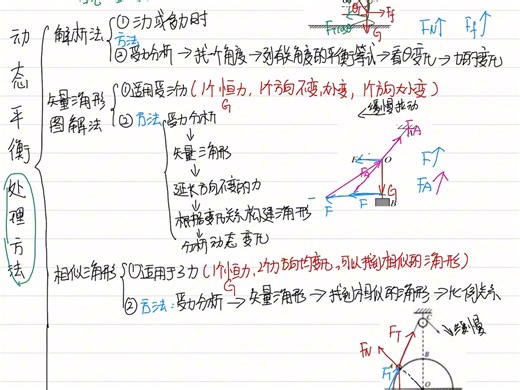 动态平衡处理方法
解析法
①三力或多力时
②方法
受力分析→找一个角度→列有关角度的平衡等式→看θ变化→力的变化
Ff
G
FN↑ Ff↑
矢量三角形
图解法
①适用受三力(1个恒力,1个方向不变,大小变,1个方向大小变)
G
②方法:受力分析
↓
矢量三角形
↓
延长方向不变的力
↓
根据变化关系构建三角形
↓
分析动态变化
←缓慢拉动
FA
F O
F↑
FA↑
G
F F
相似三角形
①适用于3力(1个恒力,2个力方向均变化,可以找到相似的三角形)
G
②方法:受力分析→矢量三角形→找到相似的三角形→比例关系
缓慢
FT
FN
B